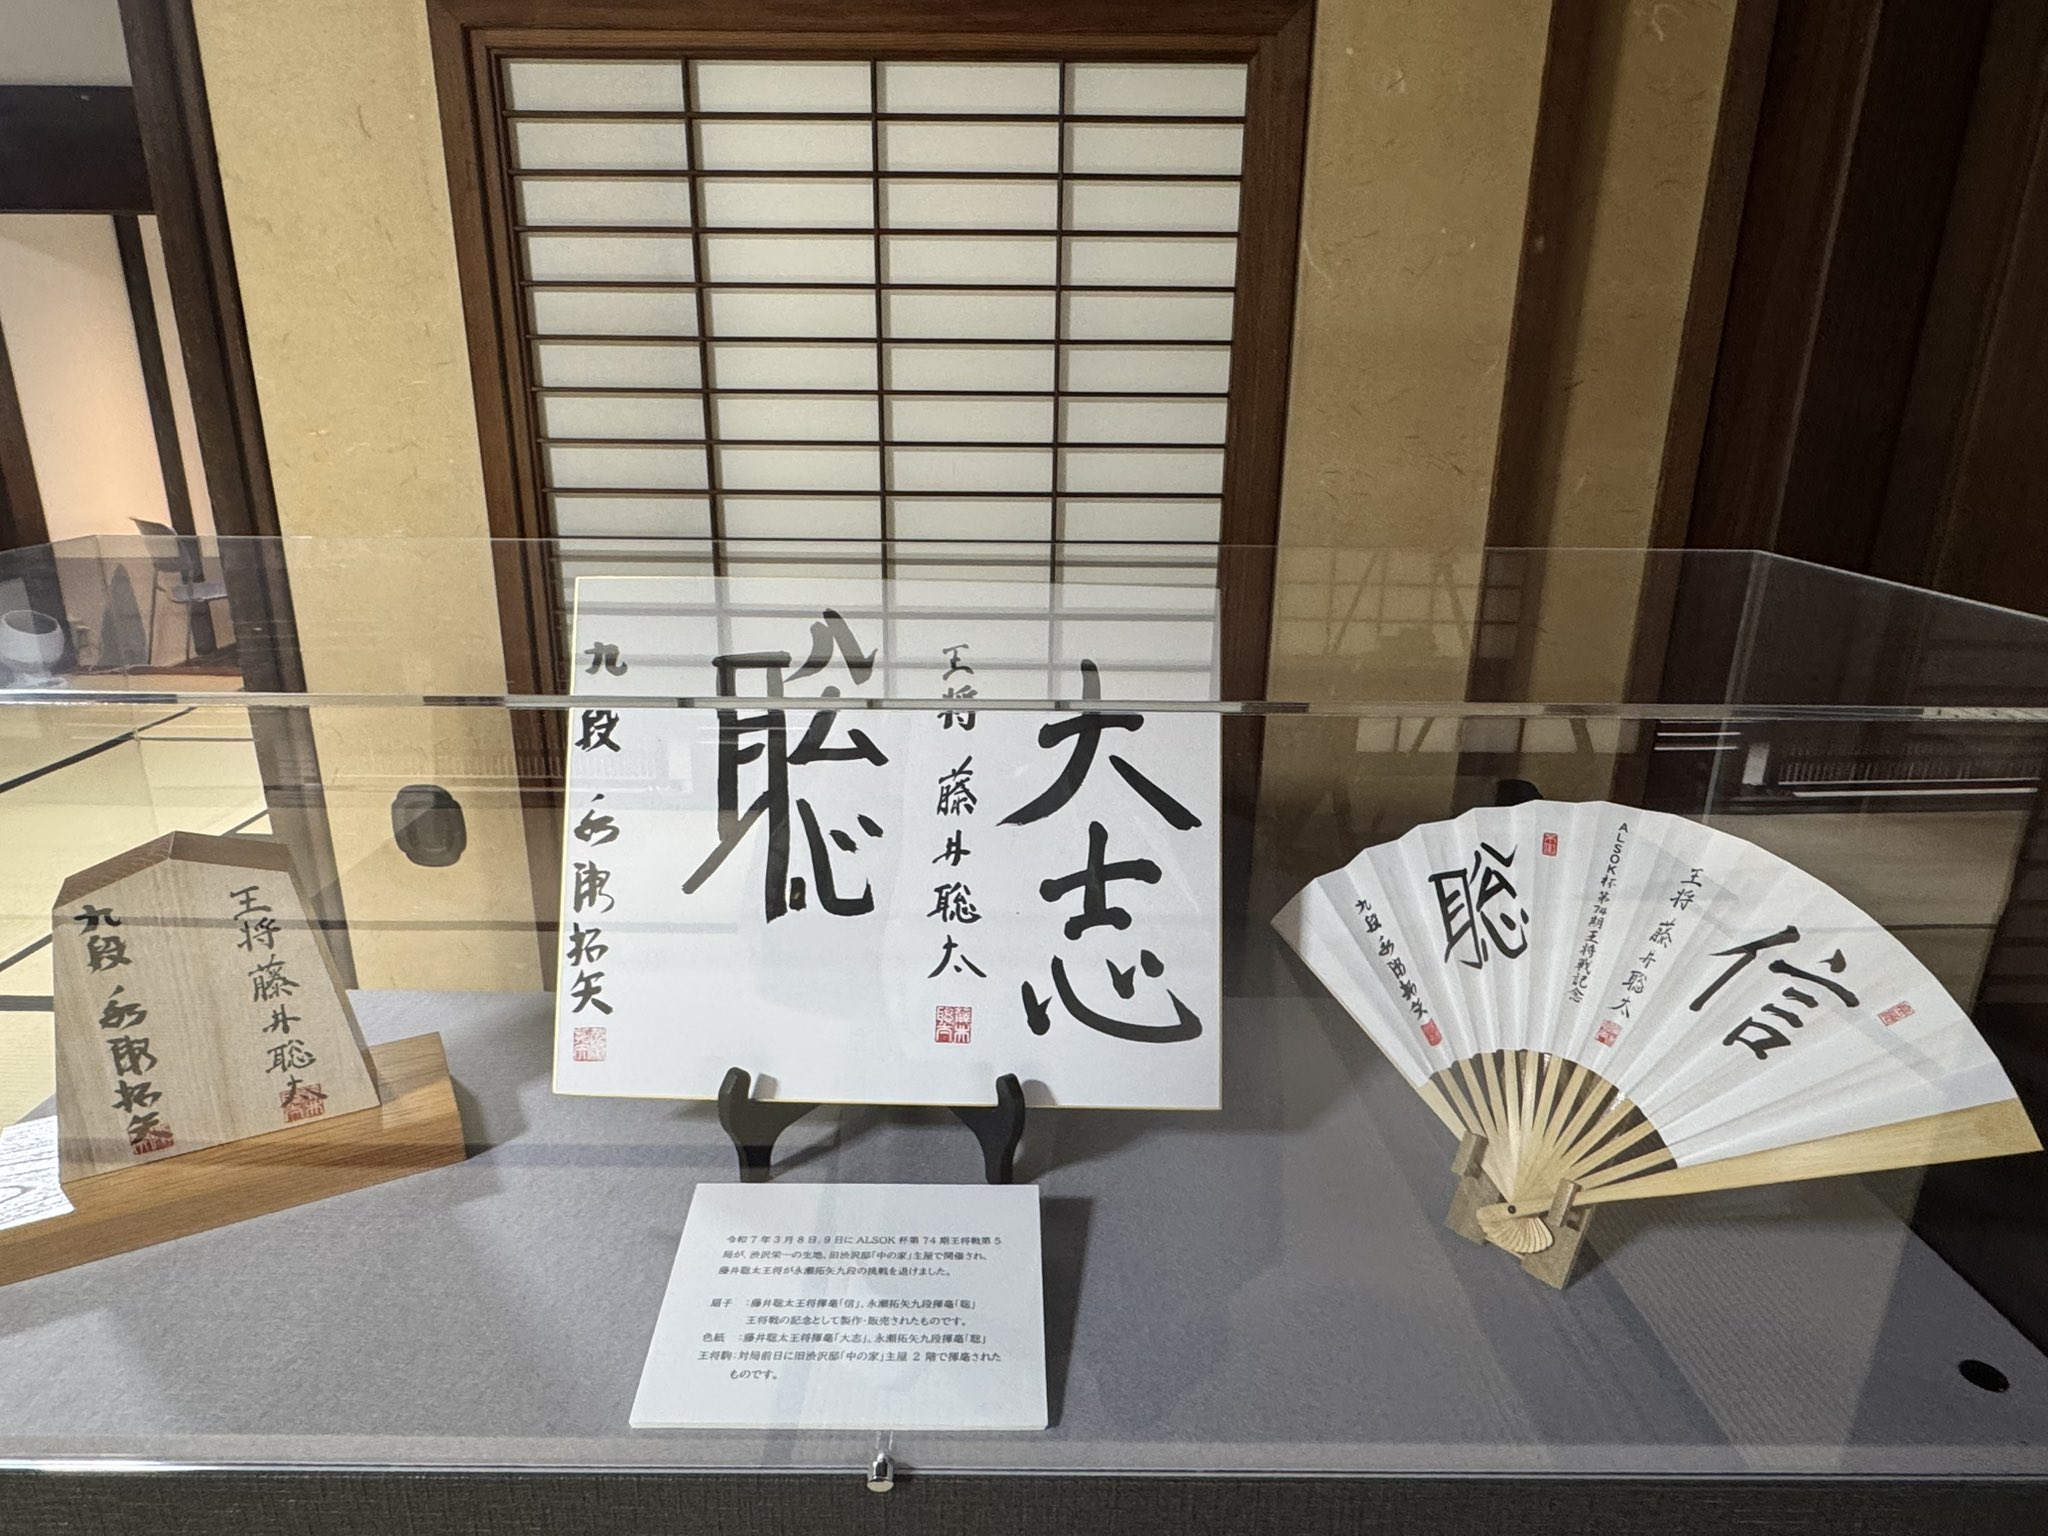 王将 藤井聡太
九段 永瀬拓矢
大志
王将 藤井聡太
聡
九段 永瀬拓矢
信
王将 藤井聡太
ALSOK杯第74期王将戦記念
聡
九段 永瀬拓矢
令和7年3月8日、9日にALSOK杯第74期王将戦第5
局が、渋沢栄一の生地、旧渋沢邸「中の家」主屋で開催され、
藤井聡太王将が永瀬拓矢九段の挑戦を退けました。
扇子　：藤井聡太王将揮毫「信」、永瀬拓矢九段揮毫「聡」
王将戦の記念として製作・販売されたものです。
色紙　：藤井聡太王将揮毫「大志」、永瀬拓矢九段揮毫「聡」
王将駒：対局前日に旧渋沢邸「中の家」主屋2階で揮毫された
ものです。